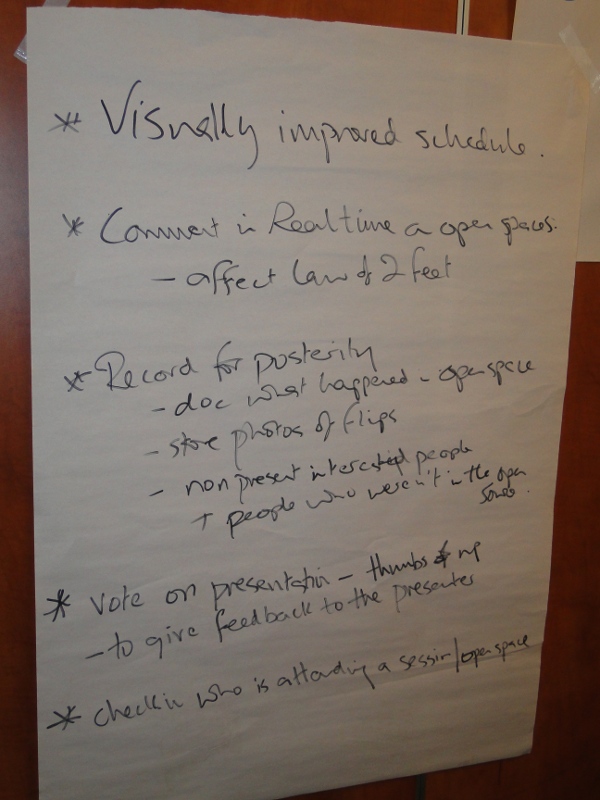 * Visually improved schedule.
* Comment in Realtime on open spaces.
- affect law of 2 feet
* Record for posterity
- doc what happened - openspace
- store photos of flips
- non present interested people
+ people who weren't in the open
* Vote on presentation - thumbs up
- to give feedback to the presenter
* checkin who is attending a session/openspace